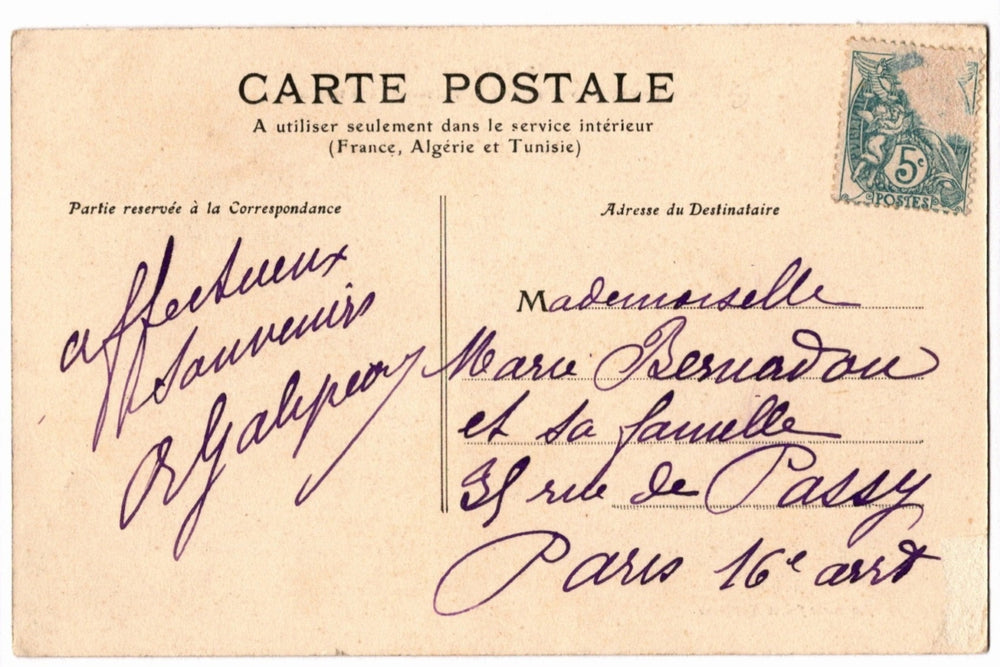 CARTE POSTALE
A utiliser seulement dans le service intérieur
(France, Algérie et Tunisie)
Partie reservée à la Correspondance
affectueux
souvenirs
Adresse du Destinataire
5c
POSTES
Mademoiselle
Marie Bernadou
et sa famille
35 rue de Passy
Paris 16e arrdt